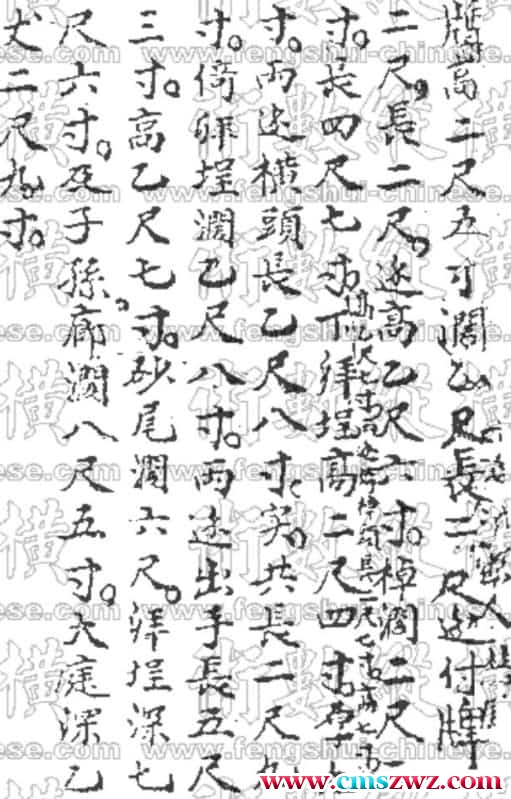 牌高二尺五寸濶乙尺長二尺邊付牌
二尺。長二尺。邊高乙尺六寸。棹濶二尺二
寸。長四尺七寸。下拜埕高二尺四寸。
寸。両邊横頭長乙尺八寸。共長二尺九
寸。倚拜埕濶乙尺八寸。両邊出手長五尺
三寸。高乙尺七寸。砂尾濶六尺。拜埕深七
尺六寸。及子孫廊濶八尺五寸。大埕深乙
丈二尺九寸。
www.fengshui-chinese.com
www.cmszwz.com